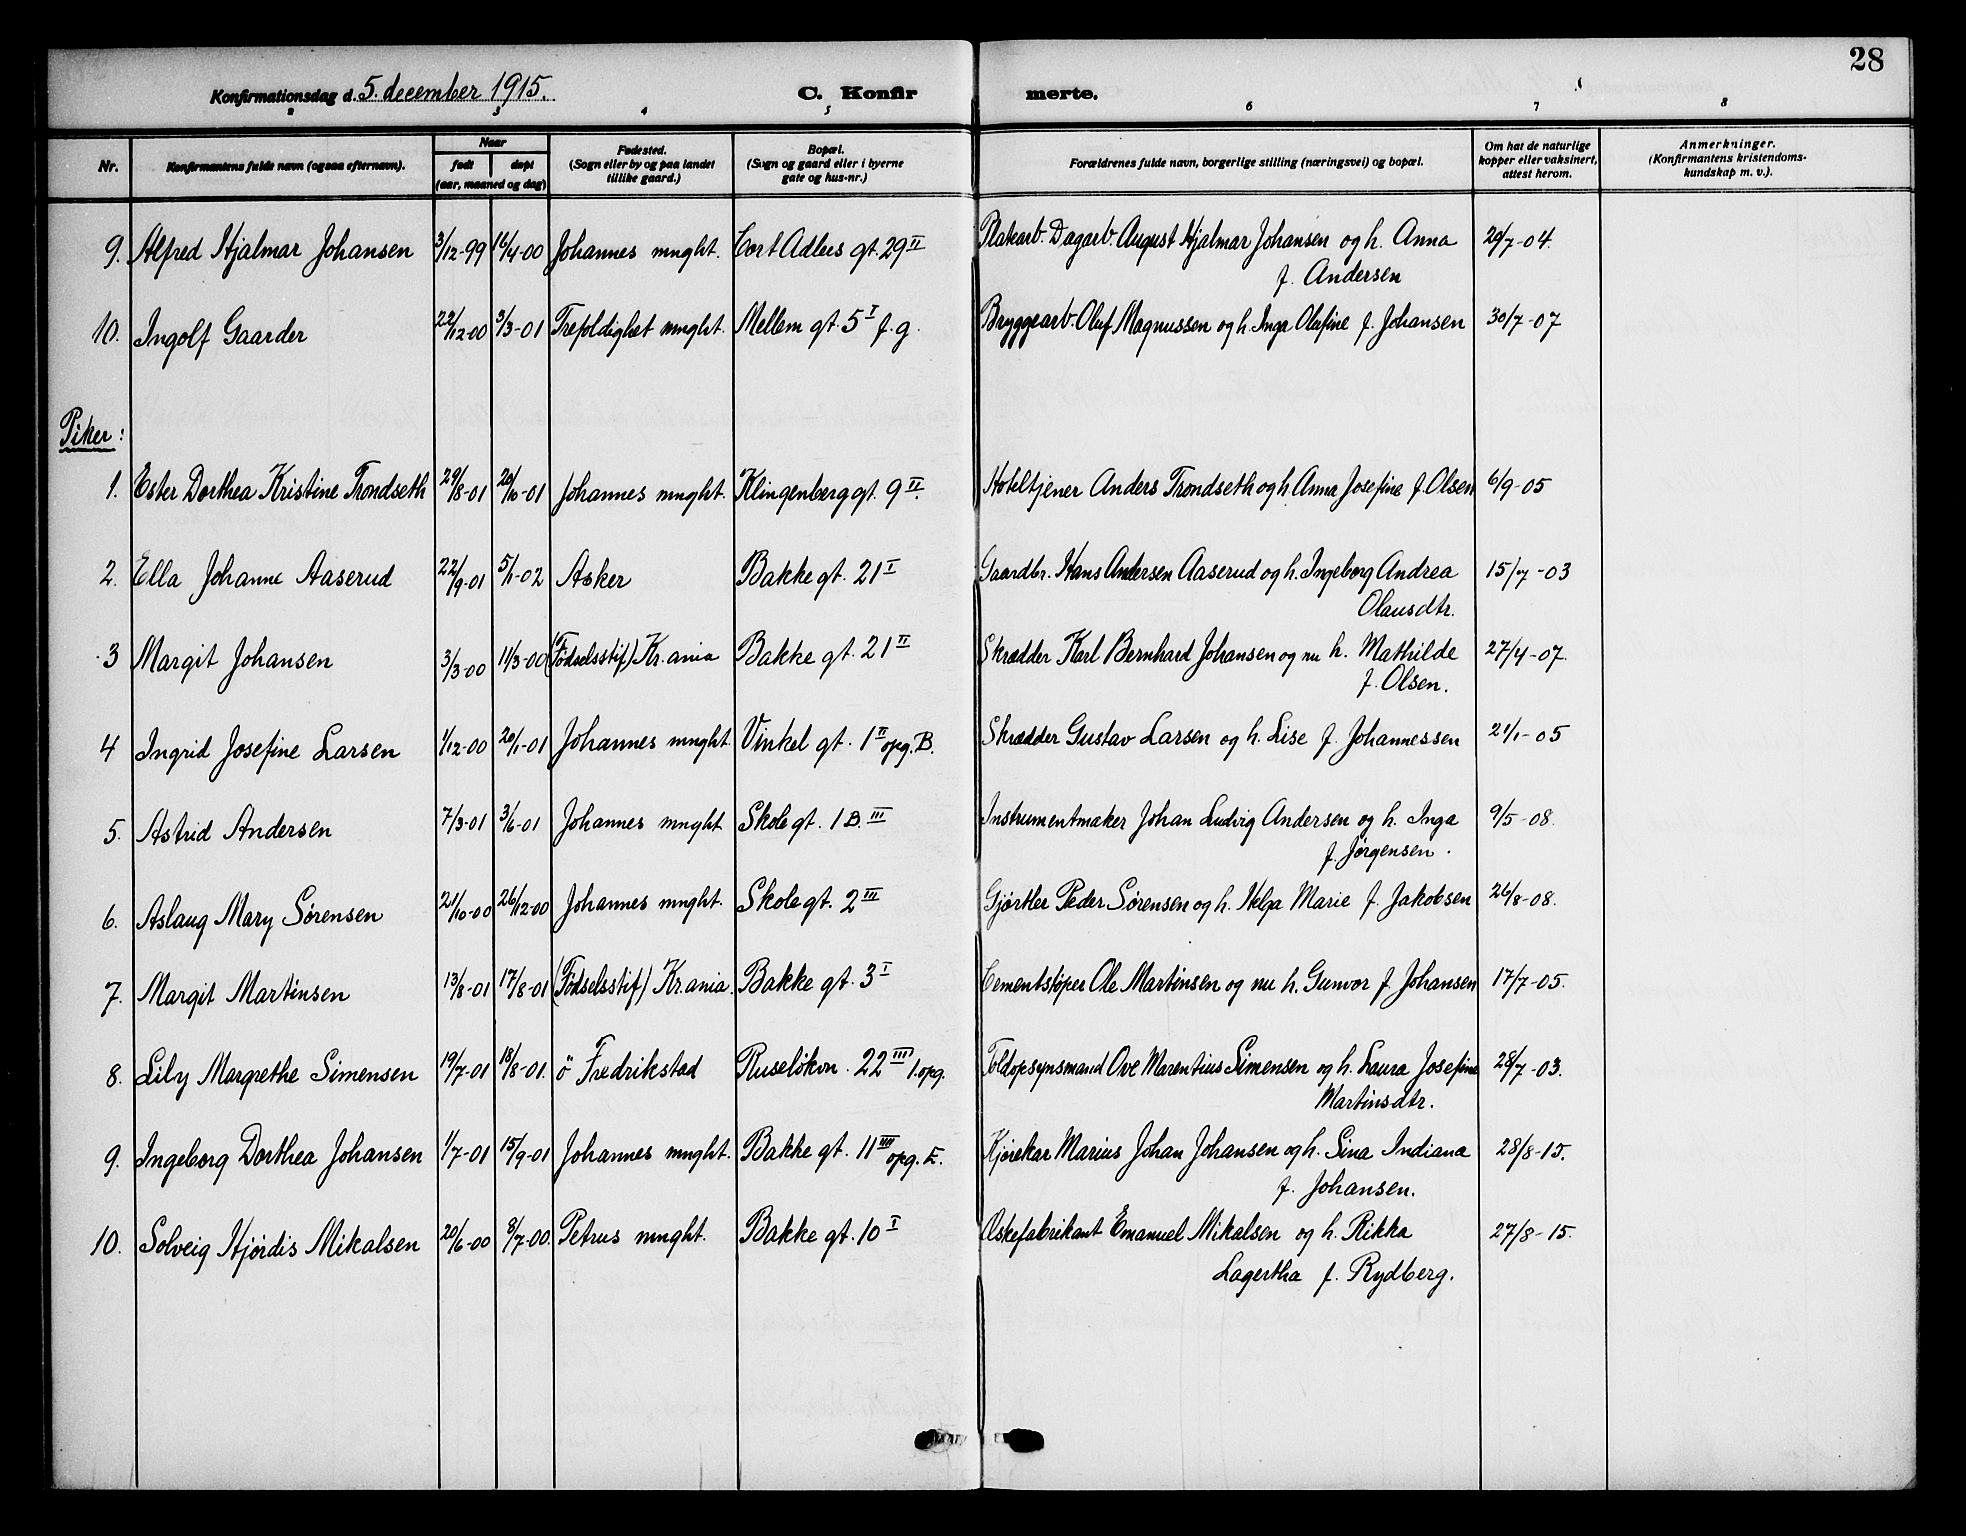 28
Konfirmationsdag d. 5. december 1915. C. Konfirmerte.
2 3 4 5 6 7 8
Nr. Konfirmantens fulde navn (ogsaa efternavn). Naar født døpt (aar, maaned og dag) Fødested. (Sogn eller by og paa landet tillike gaard.) Bopæl. (Sogn og gaard eller i byerne gate og hus-nr.) Forældrenes fulde navn, borgerlige stilling (næringsvei) og bopæl. Om hat de naturlige kopper eller vaksinert, attest herom. Anmerkninger. (Konfirmantens kristendomskundskap m. v.).
9. Alfred Hjalmar Johansen 3/12-99 16/4-00 Johannes mnght. Cort Adlers gt. 29 II Dagarb. August Hjalmar Johansen og h. Anna 29/7-04.
f. Andersen
10. Ingolf Gaarder 22/12-00 3/3-01 Trefoldighet mnght. Mellem gt. 5 I f.g. Bryggearb. Oluf Magnussen og h. Inga Olufine f. Johansen 30/7-07
Piker:
1. Ester Dorthea Kristine Trondseth 29/8-01 20/10-01 Johannes mnght. Klingenberg gt. 9 II. Hoteltjener Anders Trondseth og h. Anna Josefine f. Olsen 6/9-05
2. Ella Johanne Aaserud 22/9-01 5/1-02 Asker Bakke gt. 21 I Gaardbr. Hans Andersen Aaserud og h. Ingeborg Andrea 15/7-03
Olausdtr.
3 Margit Johansen 3/3-00 11/3-00 (Födselsstif) Kr.ania Bakke gt. 21 II Skrædder Karl Bernhard Johansen og nu h. Mathilde 27/4-07.
f. Olsen.
4 Ingrid Josefine Larsen 1/12-00 20/1-01 Johannes mnght. Vinkel gt. 1 II opg. B. Skrædder Gustav Larsen og h. Lise f. Johannessen 21/1-05
5. Astrid Andersen 7/3-01 3/6-01 Johannes mnght. Skole gt. 1 B. III Instrumentmaker Johan Ludvig Andersen og h. Inga 9/5-08.
f. Jørgensen.
6. Aslaug Mary Sørensen 21/10-00 26/12-00 Johannes mnght. Skole gt. 2 III Gjørtler Peder Sørensen og h. Helga Marie f. Jakobsen 26/8-08.
7. Margit Martinsen 13/8-01 17/8-01 (Födselsstif) Kr.ania. Bakke gt. 3 I Cementstøper Ole Martinsen og nu h. Gunvor f. Johansen 17/7-05.
8. Lily Margrethe Simensen 19/7-01 18/8-01. ö Fredrikstad Ruseløkvn. 22 III 1. opg. Toldopsynsmand Ove Marentius Simensen og h. Laura Josefine 28/7-03.
Martinsdtr.
9. Ingeborg Dorthea Johansen 1/7-01 15/9-01 Johannes mnght. Bakke gt. 11 IIII opg. E. Kjørekar Marius Johan Johansen og h. Sina Indiana 28/8-15.
f. Johansen.
10. Solveig Hjørdis Mikalsen 20/6-00 8/7-00. Petrus mnght. Bakke gt. 10 I Æskefabrikant Emanuel Mikalsen og h. Rikka 27/8-15.
Lagertha f. Rydberg.